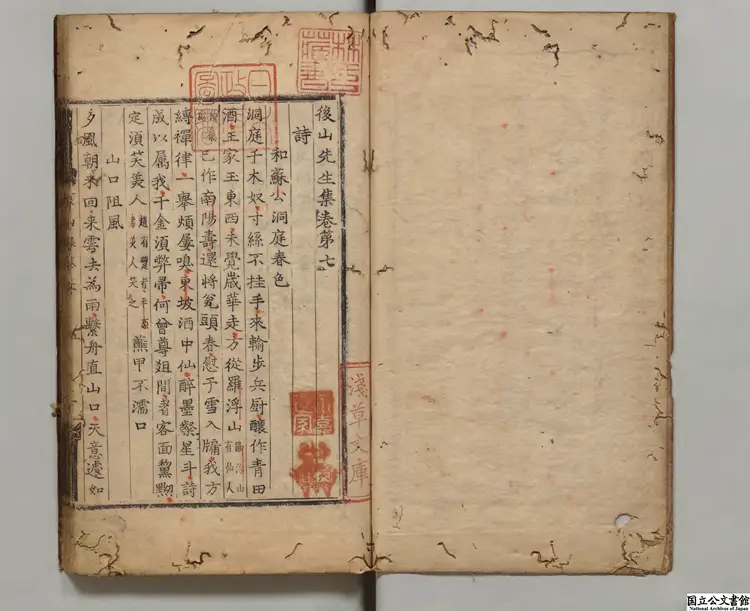 後山先生集卷第七
詩
和蘇公洞庭春色
洞庭千木奴寸絲不挂手來輸步兵厨釀作青田
酒王家玉東西未覺歳華走方從羅浮山
有仙人
已作南陽壽還將甕頭春慰予雪入牖我方
縛禪律一舉煩屢嗅東坡酒中仙醉墨粲星斗詩
成以屬我千金須弊帚何曾尊俎間著客面黧黝
定須笑美人
美人笑之
蘸甲不濡口
山口阻風
多風朝來回來雲去為雨繫舟直山口天意遽如
淺草文庫
林氏藏書
日本政圖書
国立公文書館
National Archives of Japan